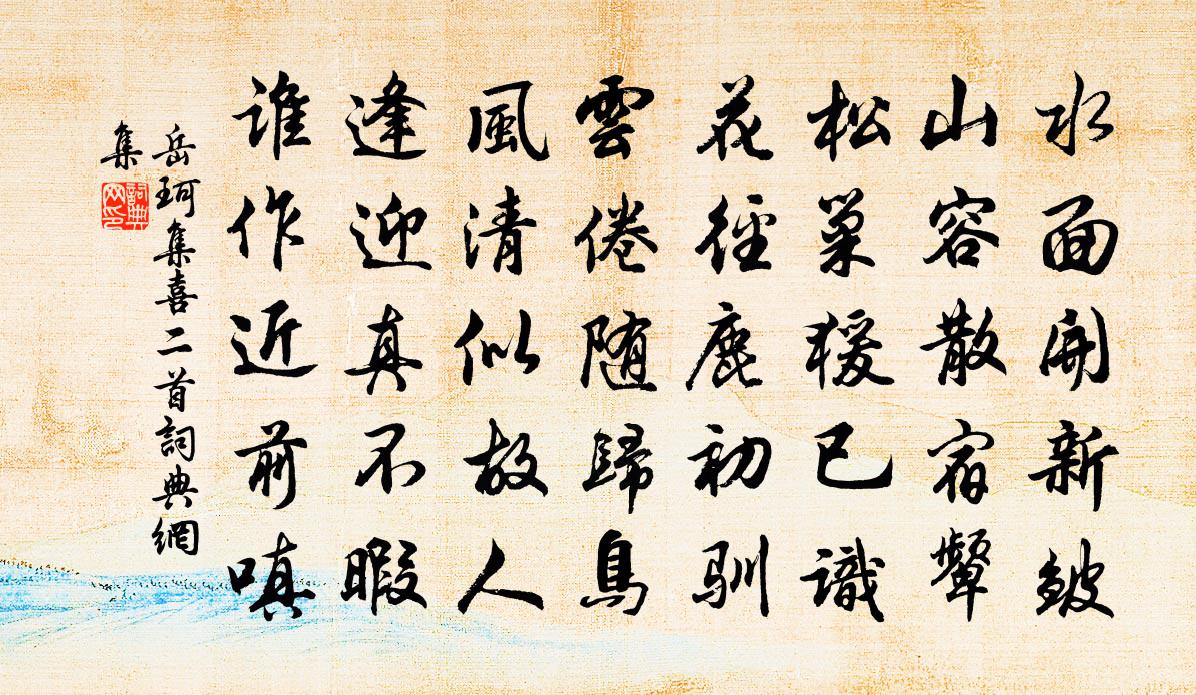 水面開新鏡
山容散宿顰
松巢猨已識
花徑鹿初馴
雲倦随歸鳥
風清似故人
逢迎真不暇
誰作近前嗔
岳珂集喜二首詞典網
集
詞典
网印